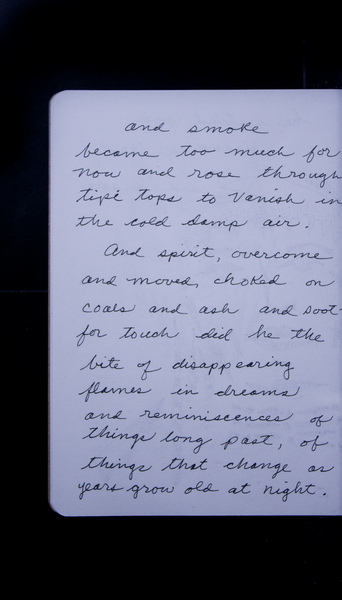 and smoke
become too much for
now and rose through
tipi tops to Vanish in
the cold damp air.
And spirit, overcome
and moved, choked on
coals and ash and soot-
for touch did he the
bite of disappearing
flames in dreams
and reminiscences of
things long past, of
things that change as
years grow old at night.